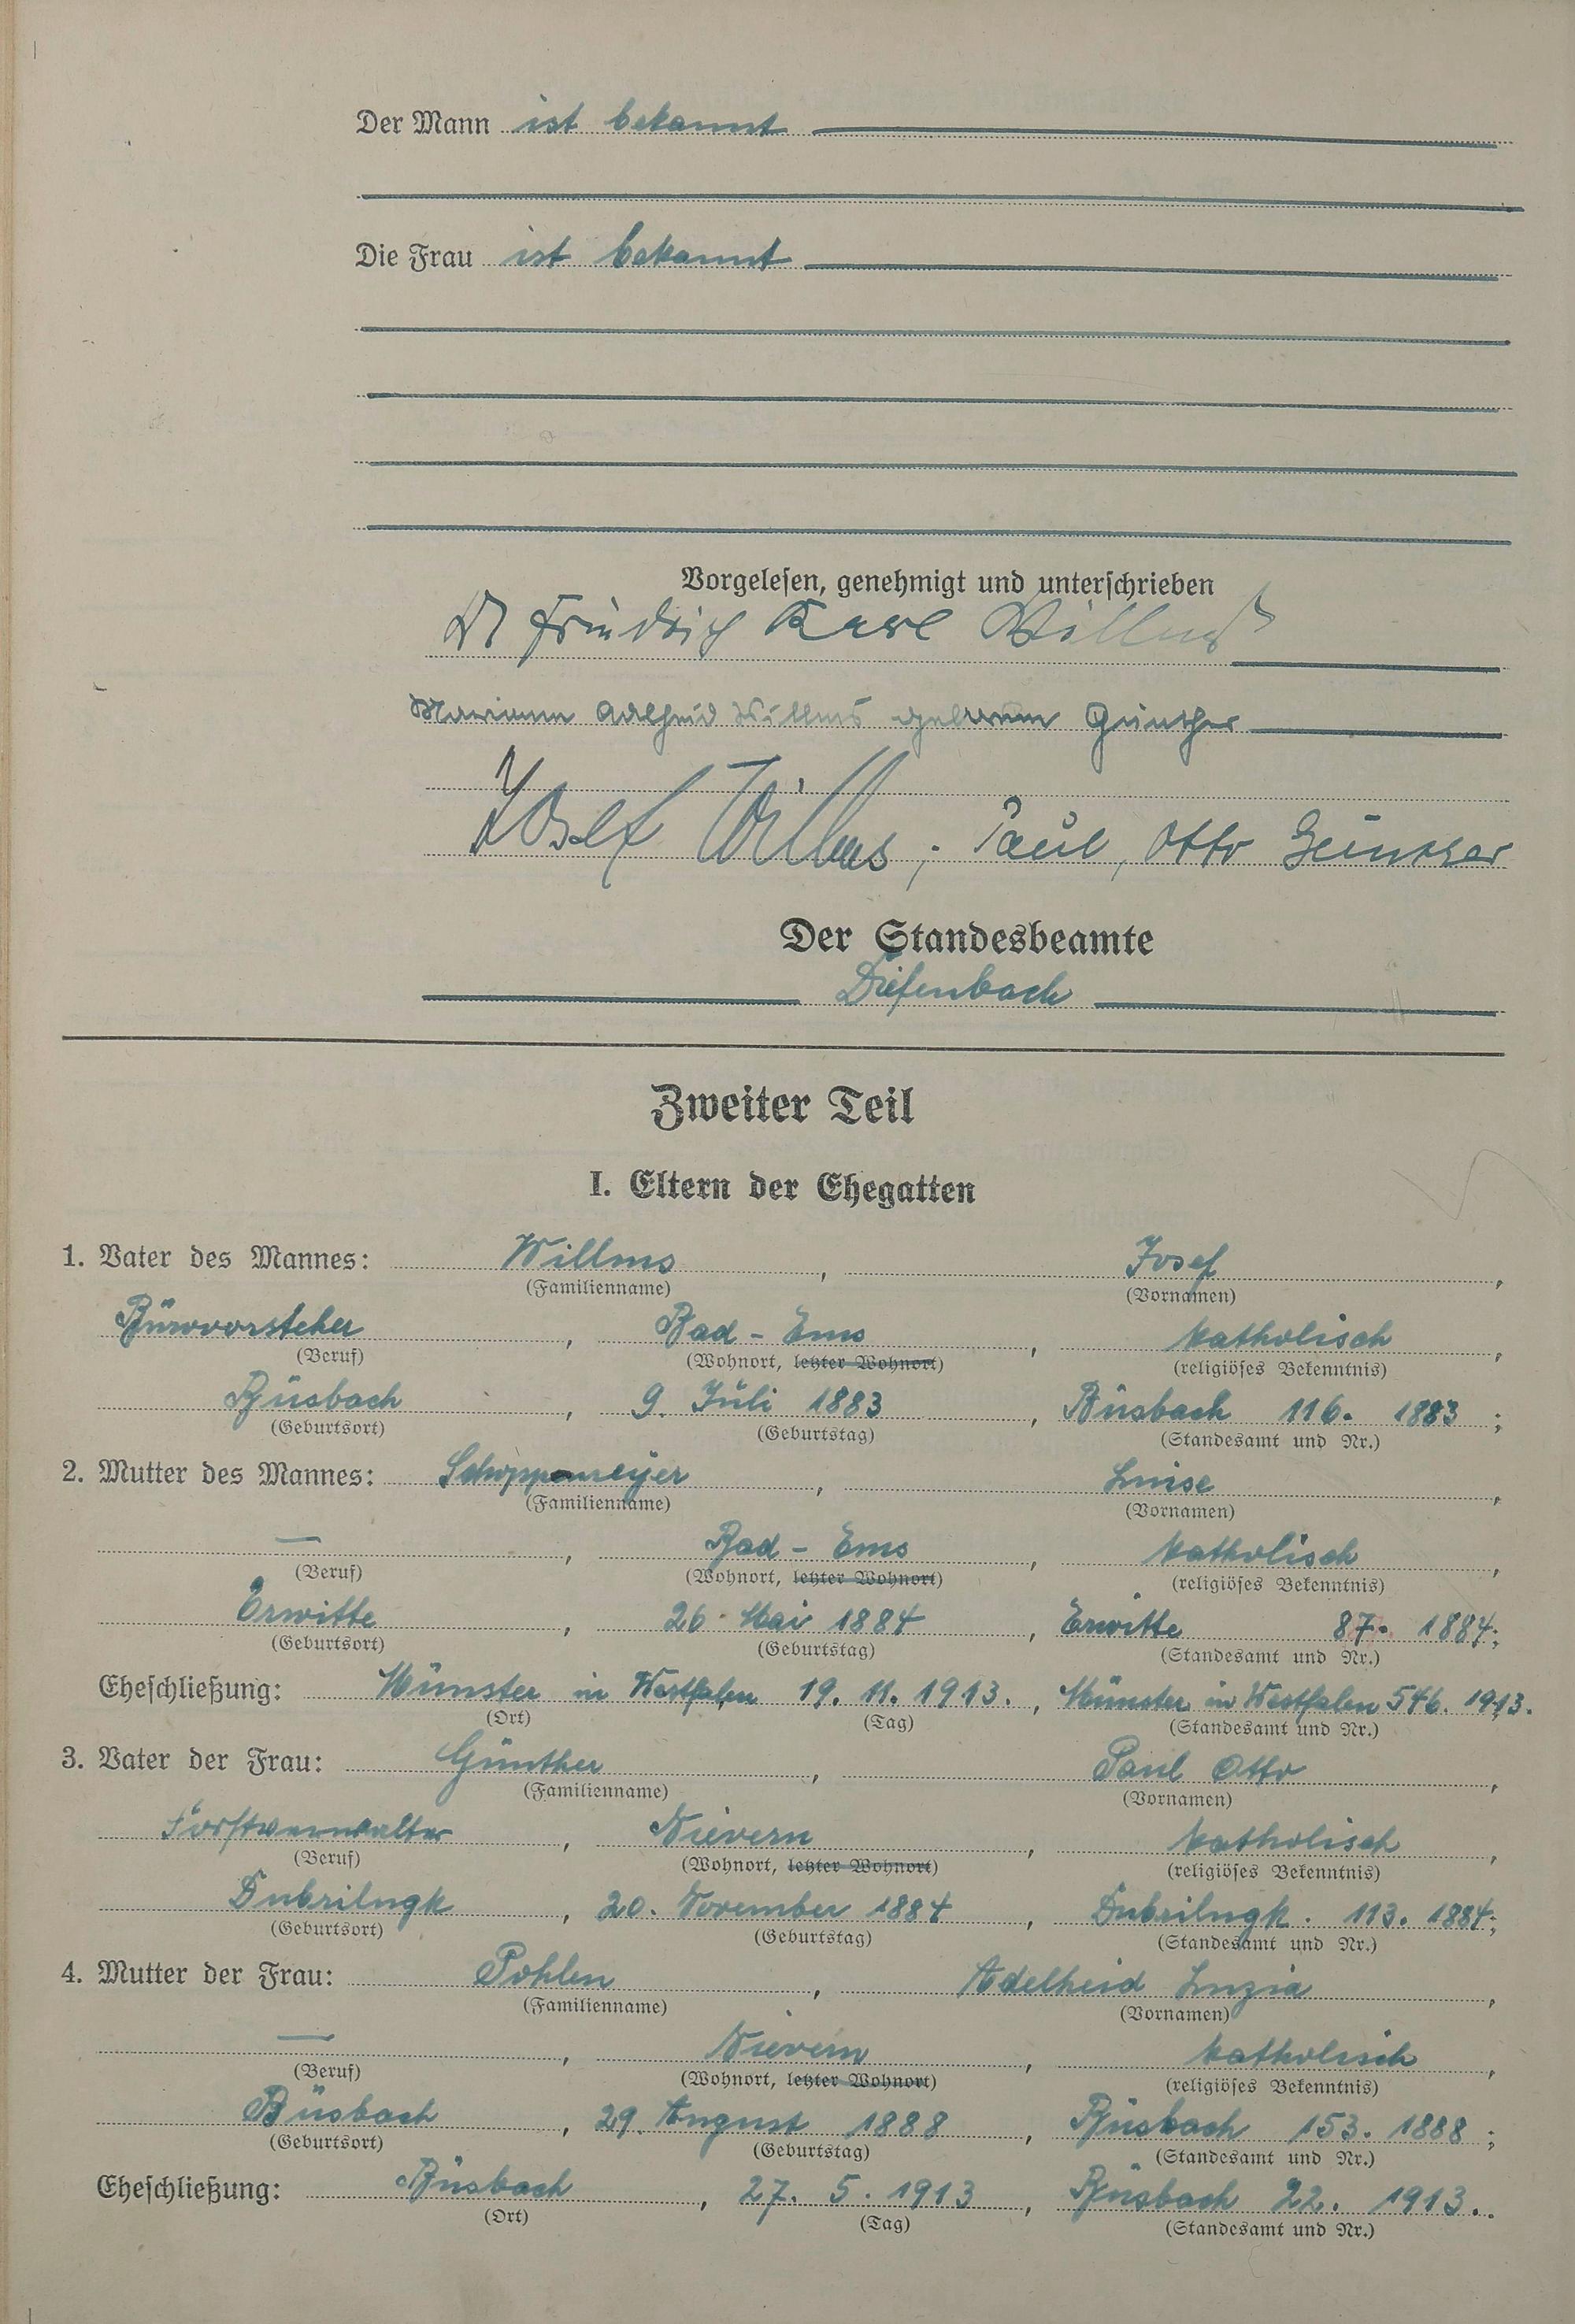 Der Mann ist bekannt
Die Frau ist bekannt
Vorgelesen, genehmigt und unterschrieben
Dr Friedrich Karl Willms
Marianne Adelheid Willms geborene Günther
Josef Willms, Paul, Otto Günther
Der Standesbeamte
Diefenbach
Zweiter Teil
I. Eltern der Ehegatten
1. Vater des Mannes: Willms, Josef,
(Familienname) (Vornamen)
Bürovorsteher, Bad-Ems, katholisch,
(Beruf) (Wohnort, letzter Wohnort) (religiöses Bekenntnis)
Büsbach, 9. Juli 1883, Büsbach 116. 1883;
(Geburtsort) (Geburtstag) (Standesamt und Nr.)
2. Mutter des Mannes: Schoppenmeyer, Luise,
(Familienname) (Vornamen)
—, Bad-Ems, katholisch,
(Beruf) (Wohnort, letzter Wohnort) (religiöses Bekenntnis)
Erwitte, 26. Mai 1884, Erwitte 87. 1884;
(Geburtsort) (Geburtstag) (Standesamt und Nr.)
Eheschließung: Münster in Westfalen 19. 11. 1913., Münster in Westfalen 546. 1913.
(Ort) (Tag) (Standesamt und Nr.)
3. Vater der Frau: Günther, Paul Otto,
(Familienname) (Vornamen)
Forstverwalter, Nievern, katholisch,
(Beruf) (Wohnort, letzter Wohnort) (religiöses Bekenntnis)
Dubrilugk, 20. November 1884, Dubrilugk. 113. 1884;
(Geburtsort) (Geburtstag) (Standesamt und Nr.)
4. Mutter der Frau: Pohlen, Adelheid Luzia,
(Familienname) (Vornamen)
—, Nievern, katholisch,
(Beruf) (Wohnort, letzter Wohnort) (religiöses Bekenntnis)
Büsbach, 29. August 1888, Büsbach 153. 1888;
(Geburtsort) (Geburtstag) (Standesamt und Nr.)
Eheschließung: Büsbach, 27. 5. 1913, Büsbach 22. 1913.
(Ort) (Tag) (Standesamt und Nr.)